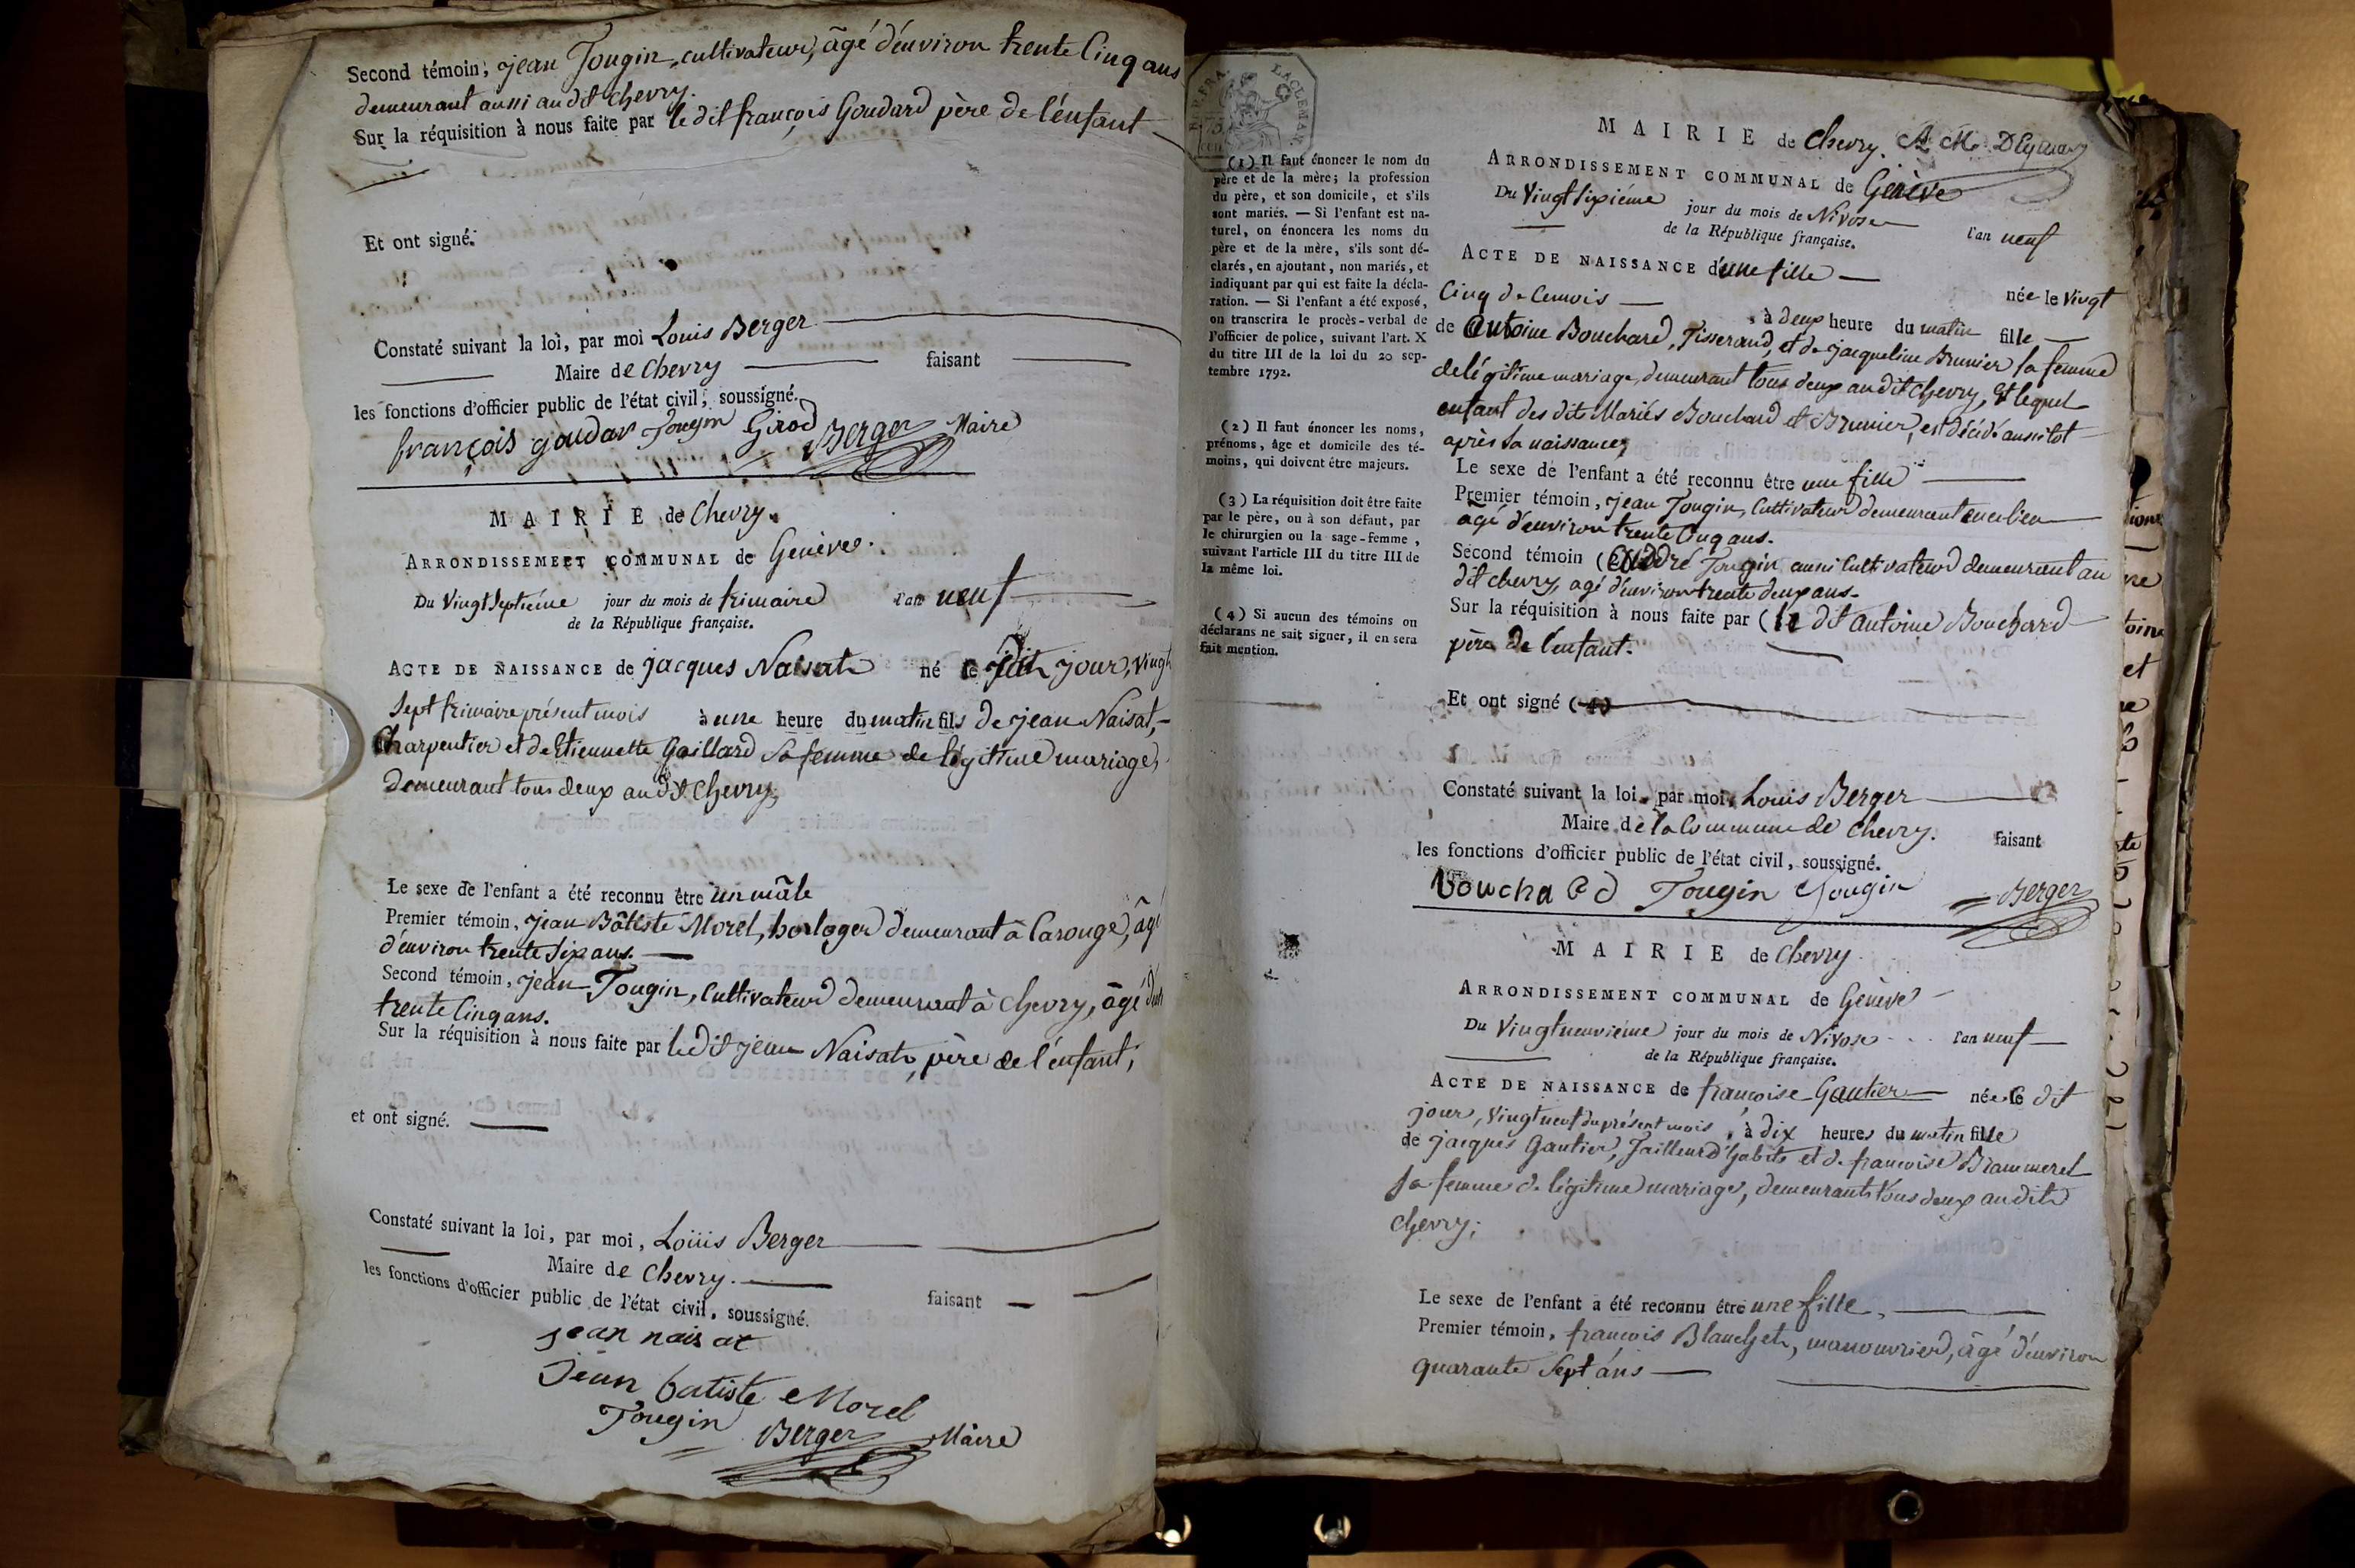 Second témoin, jean Tougin, cultivateur, âgé d'environ trente Cinq ans
demeurant aussi au dit Chevry.
Sur la réquisition à nous faite par le dit françois Goudard père de l'énfant
Et ont signé.
Constaté suivant la loi, par moi Louis Berger
Maire de Chevry faisant
les fonctions d'officier public de l'état civil, soussigné.
françois goudar Tougin Girod Berger Maire
MAIRIE de Chevry.
ARRONDISSEMEET COMMUNAL de Genève.
Du Vingt Septiéme jour du mois de frimaire l'an neuf
de la République française.
ACTE DE NAISSANCE de jacques Naisat né le dit jour, vingt
Sept frimaire présent mois à une heure du matin fils de jean Naisat,
Charpentier et de Etiennette Gaillard Sa femme de légitime mariage,
Demeurant tous deux au dit Chevry,
Le sexe de l'enfant a été reconnu être un mâle
Premier témoin, jean Bâtiste Morel, horloger demeurant à Carouge, âgé
d'environ trente Six ans.
Second témoin, jean Tougin, Cultivateur demeurant à Chevry, âgé
trente Cinq ans.
Sur la réquisition à nous faite par le dit jean Naisat, père de l'énfant,
et ont signé.
Constaté suivant la loi, par moi, Louis Berger
Maire de Chevry. faisant
les fonctions d'officier public de l'état civil, soussigné.
jean naisat
Jean batiste Morel
Tougin Berger Maire
(1) Il faut énoncer le nom du
père et de la mère; la profession
du père, et son domicile, et s'ils
sont mariés. — Si l'enfant est na-
turel, on énoncera les noms du
père et de la mère, s'ils sont dé-
clarés, en ajoutant, non mariés, et
indiquant par qui est faite la décla-
ration. — Si l'enfant a été exposé,
on transcrira le procès-verbal de
l'officier de police, suivant l'art. X
du titre III de la loi du 20 sep-
tembre 1792.
(2) Il faut énoncer les noms,
prénoms, âge et domicile des té-
moins, qui doivent être majeurs.
(3) La réquisition doit être faite
par le père, ou à son défaut, par
le chirurgien ou la sage-femme,
suivant l'article III du titre III de
la même loi.
(4) Si aucun des témoins ou
déclarans ne sait signer, il en sera
fait mention.
MAIRIE de Chevry.
ARRONDISSEMENT COMMUNAL de Genève
Du Vingt Sixiéme jour du mois de Nivose l'an neuf
de la République française.
ACTE DE NAISSANCE d'une fille née le Vingt
Cinq de Ce mois à deux heure du matin fille
de Antoine Bouchard, Tisserand, et de jacqueline Brunier sa femme
de légitime mariage, demeurant tous deux au dit Chevry, Et lequel
enfant des dits Mariés Bouchard et Brunier, est décédé aussitot
après Sa naissance,
Le sexe de l'enfant a été reconnu être une fille
Premier témoin, jean Tougin, Cultivateur demeurant
âgé d'environ trente Cinq ans.
Second témoin (André Tougin aussi Cultivateur demeurant au
dit chevry, agé d'environ trente deux ans.
Sur la réquisition à nous faite par (le dit Antoine Bouchard
père de l'énfant.
Et ont signé (4)
Constaté suivant la loi, par moi, Louis Berger
Maire de la Commune de Chevry. faisant
les fonctions d'officier public de l'état civil, soussigné.
Bouchard Tougin Tougin Berger
MAIRIE de Chevry
ARRONDISSEMENT COMMUNAL de Genève
Du Vingt neuviéme jour du mois de Nivose l'an neuf
de la République française.
ACTE DE NAISSANCE de françoise Gautier née le dit
jour, Vingt neuf du présent mois, à dix heures du matin fille
de jacques Gautier, Tailleur d'habits et de françoise Brammerel
Sa femme de légitime mariage, demeurants tous deux au dit
Chevry;
Le sexe de l'enfant a été reconnu être une fille,
Premier témoin, françois Blanchet, manouvrier, âgé d'environ
quarante Sept ans